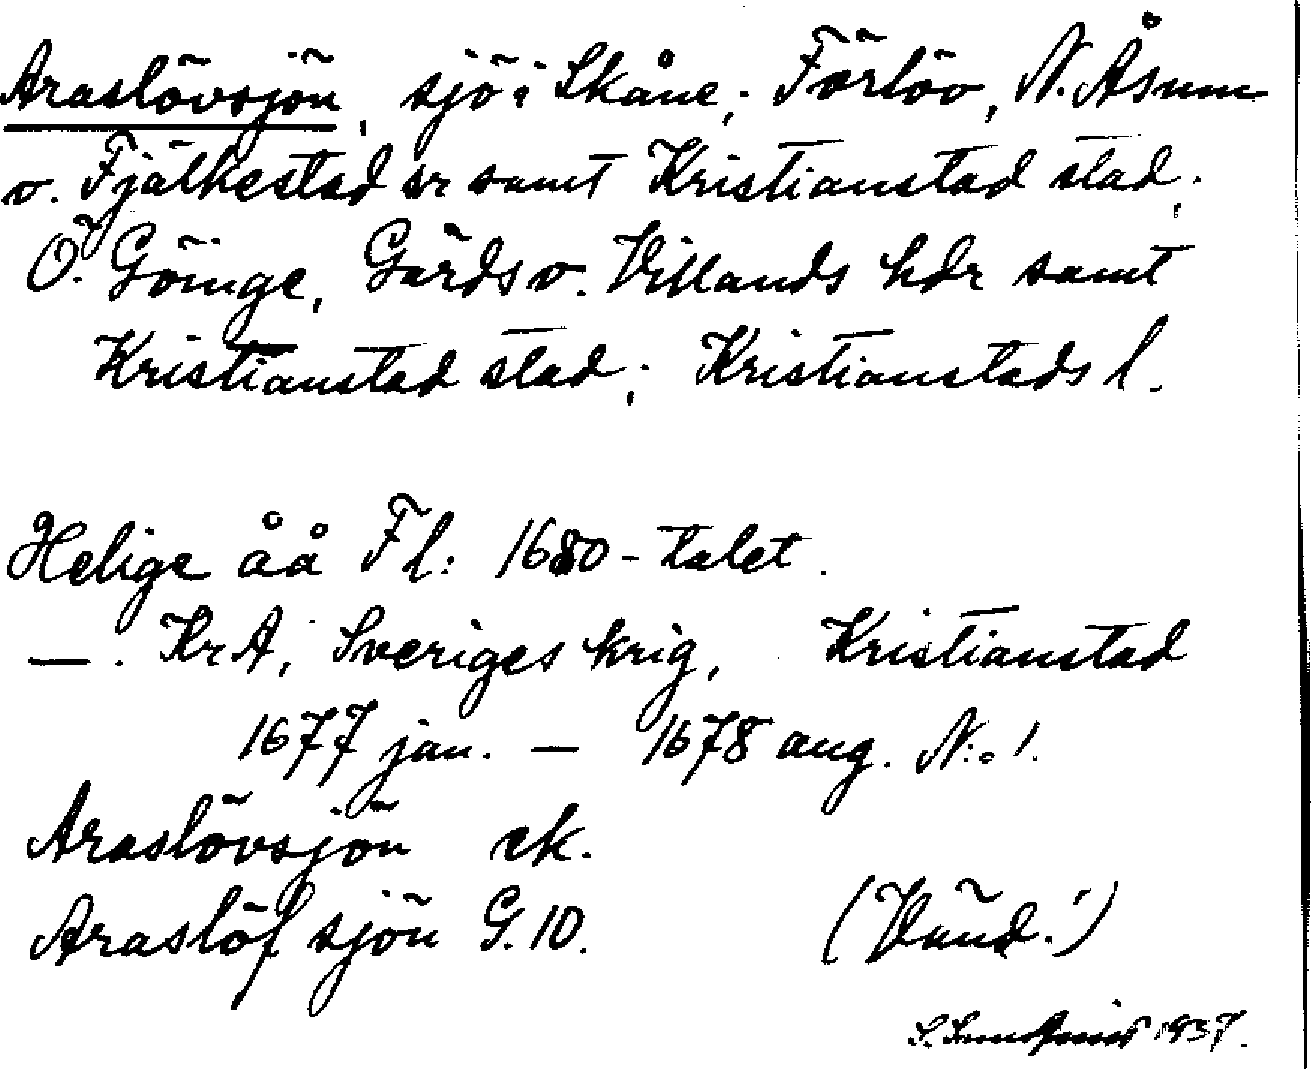 Araslövsjön, sjö i Skåne; Färlöv, N. Åsum
o. Fjälkestad sr samt Kristianstad stad;
Ö. Göinge, Gärds o. Villands hdr samt
Kristianstad stad; Kristianstads l.
Helige åå Fl: 1680-talet.
—. KrA, Sveriges krig, Kristianstad
1677 jan. — 1678 aug. N:o 1.
Araslövsjön ek.
Araslöf sjön G. 10. (Vänd!)
S. 1937.